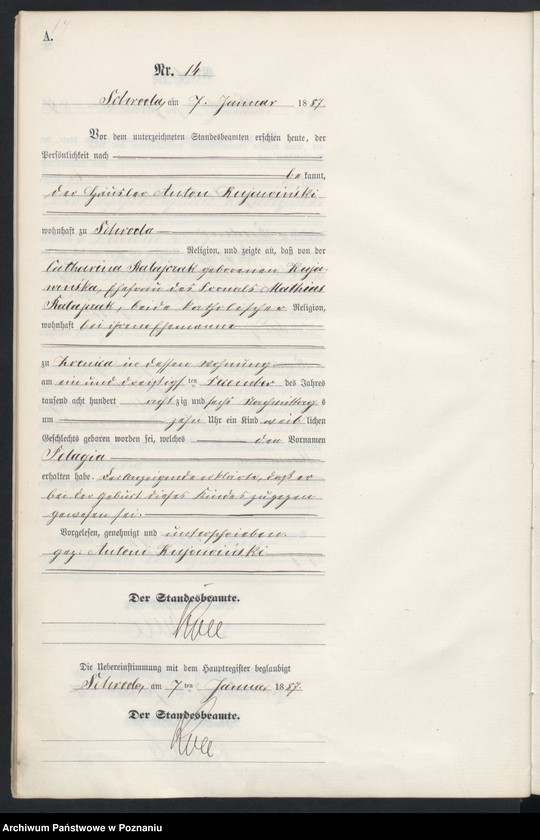 A.
Nr. 14
Schroda, am 7. Januar 1887.
Vor dem unterzeichneten Standesbeamten erschien heute, der
Persönlichkeit nach
be kannt,
der Häusler Anton Kujawiński
wohnhaft zu Schroda
Religion, und zeigte an, daß von der
Catharina Ratajczak geborenen Kuja-
winska, Ehefrau des Mathias
Ratajczak, beide katholischer Religion,
wohnhaft bei ihrem Ehemanne
zu in dessen Wohnung
am ein und dreißigsten Dezember des Jahres
tausend acht hundert acht zig und sechs Nachmittag s
um zehn Uhr ein Kind weib lichen
Geschlechts geboren worden sei, welches den Vornamen
Pelagia
erhalten habe. Der Anzeigende erklärte, daß er
bei der Geburt dieses Kindes zugegen
gewesen sei.
Vorgelesen, genehmigt und unterschrieben.
gez. Antoni Kujawiński
Der Standesbeamte.
Die Uebereinstimmung mit dem Hauptregister beglaubigt
Schroda, am 7 ten Januar 1887.
Der Standesbeamte.
Archiwum Państwowe w Poznaniu